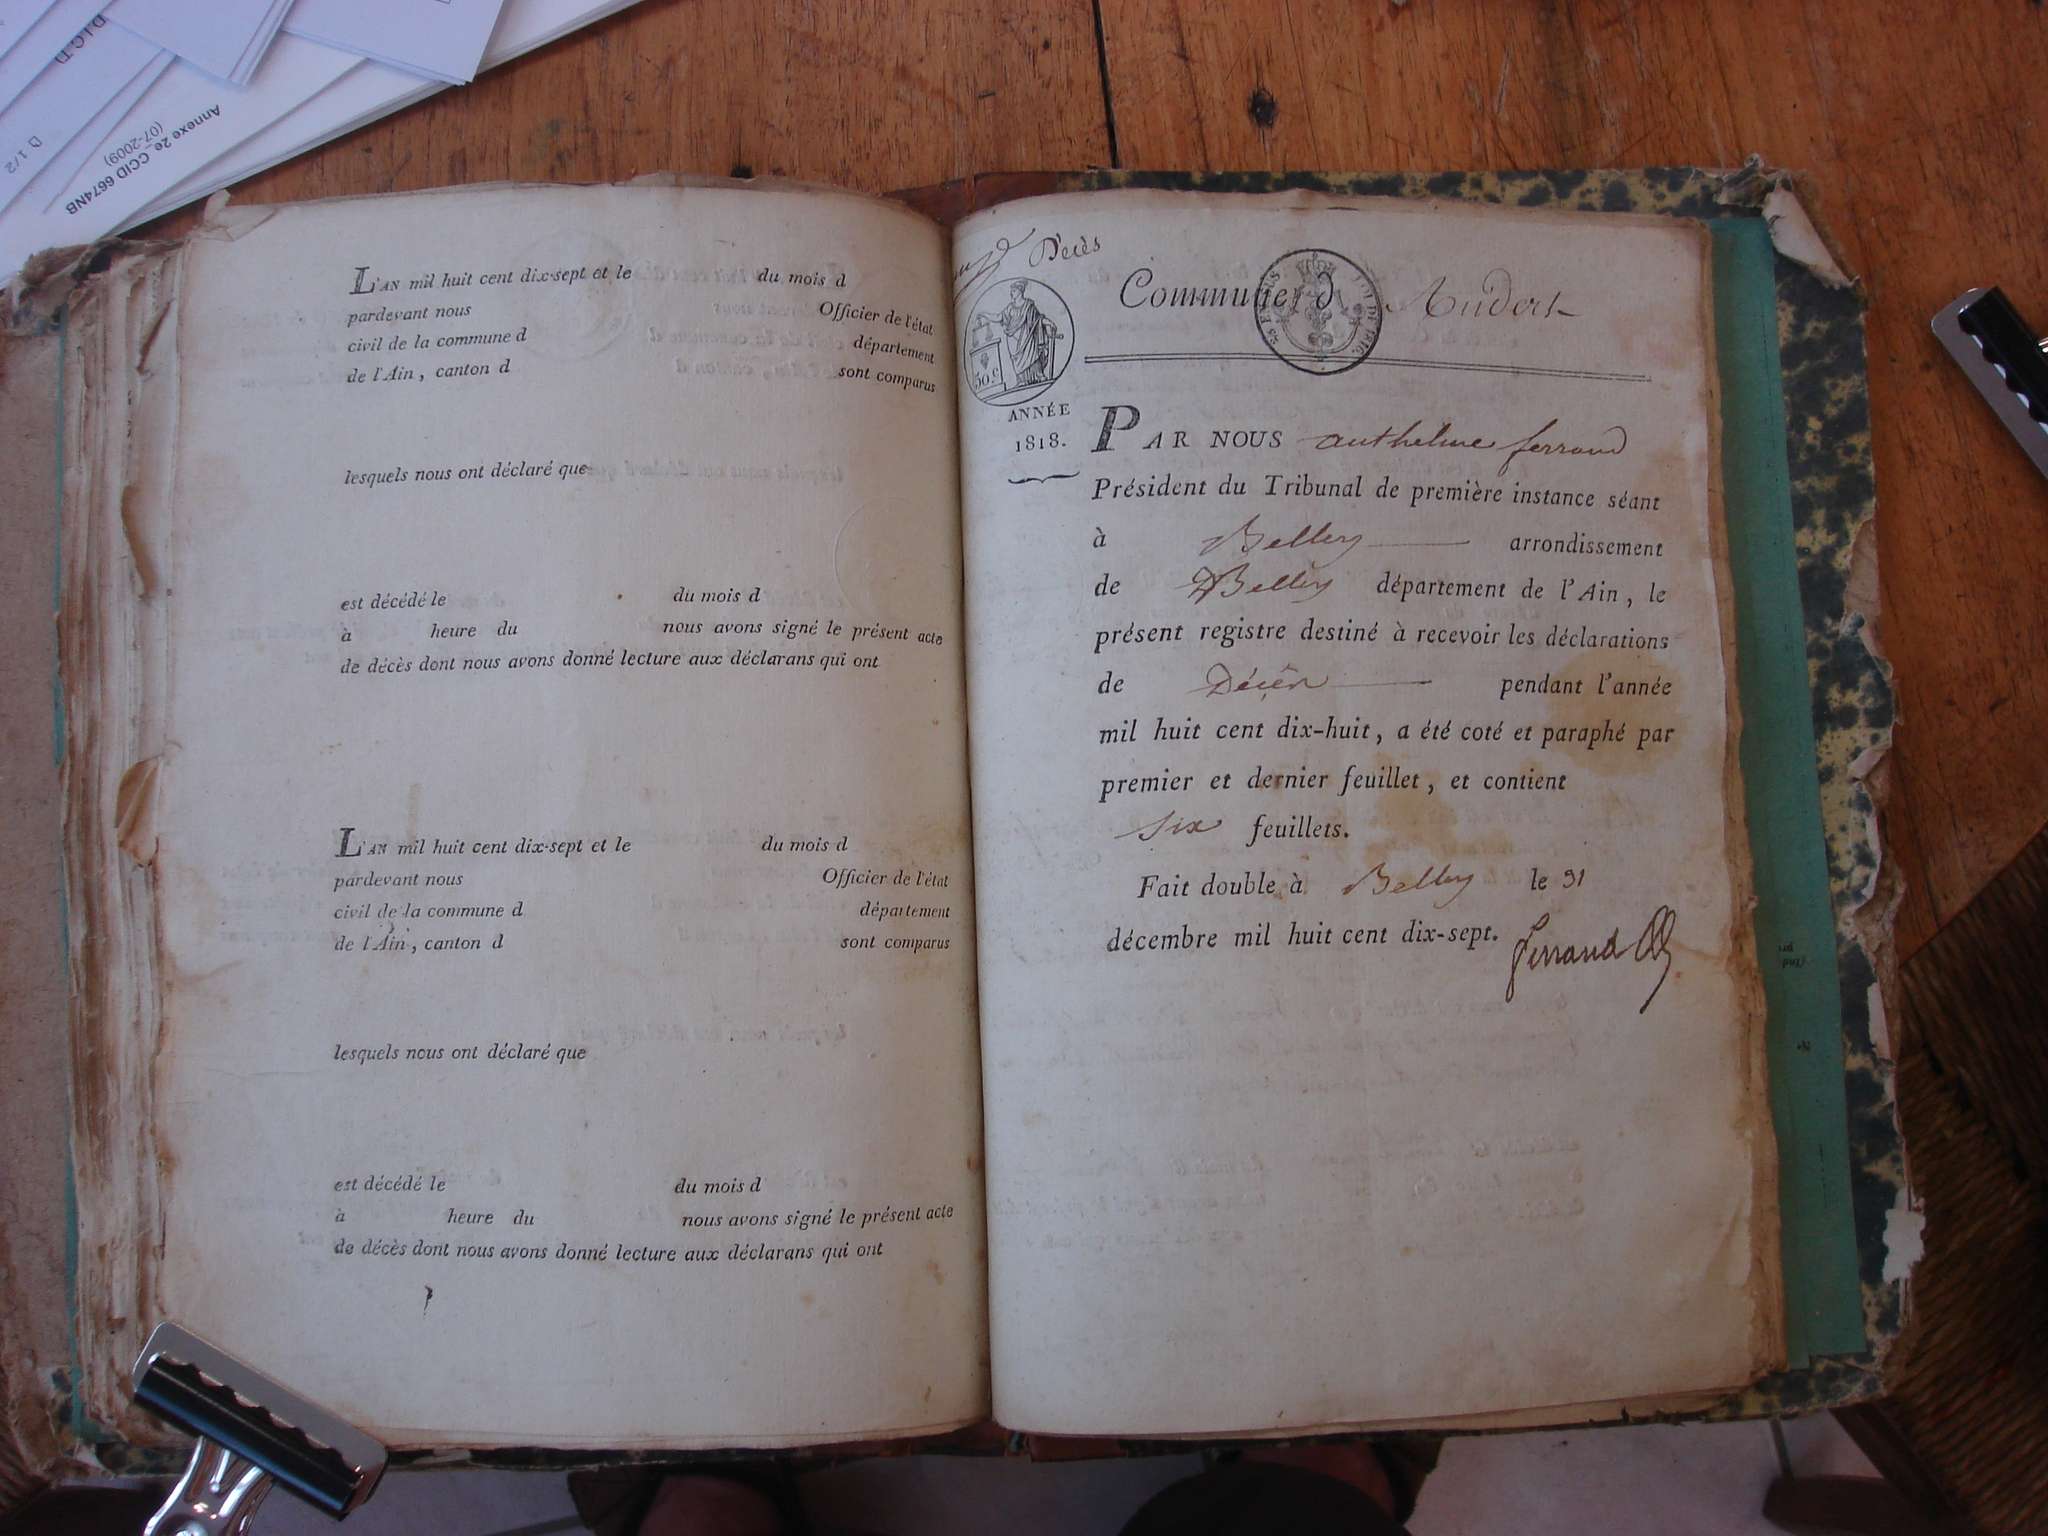 D.I.C.T)
D 1/2
Annexe 2e_CCID 6674NB
(07-2009)
L'AN mil huit cent dix-sept et le du mois d
pardevant nous Officier de l'état
civil de la commune d département
de l'Ain, canton d sont comparus
lesquels nous ont déclaré que
est décédé le du mois d
à heure du nous avons signé le présent acte
de décès dont nous avons donné lecture aux déclarans qui ont
L'AN mil huit cent dix-sept et le du mois d
pardevant nous Officier de l'état
civil de la commune d département
de l'Ain, canton d sont comparus
lesquels nous ont déclaré que
est décédé le du mois d
à heure du nous avons signé le présent acte
de décès dont nous avons donné lecture aux déclarans qui ont
Décès
50.c
Commune d Andert
ANNÉE
1818.
PAR NOUS anthelme ferrand
Président du Tribunal de première instance séant
à Belley arrondissement
de Belley département de l'Ain, le
présent registre destiné à recevoir les déclarations
de Décès pendant l'année
mil huit cent dix-huit, a été coté et paraphé par
premier et dernier feuillet, et contient
six feuillets.
Fait double à Belley le 31
décembre mil huit cent dix-sept.
ferrand